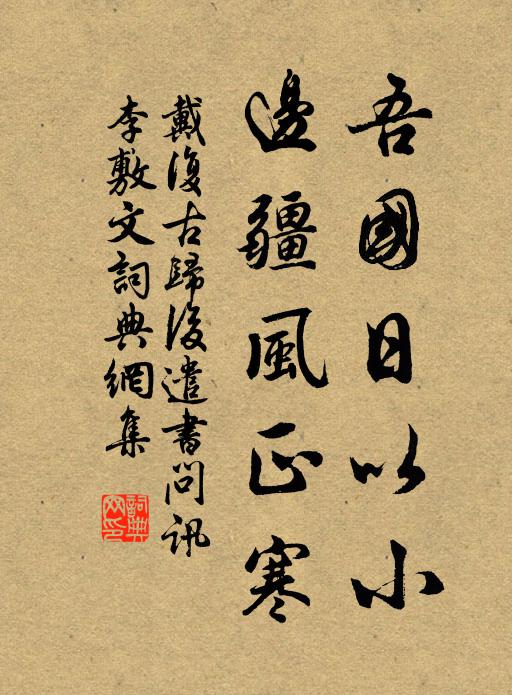 吾國日以小
邊疆風正寒
戴復古歸後遣書問訊
李敷文詞典網集
詞典網印